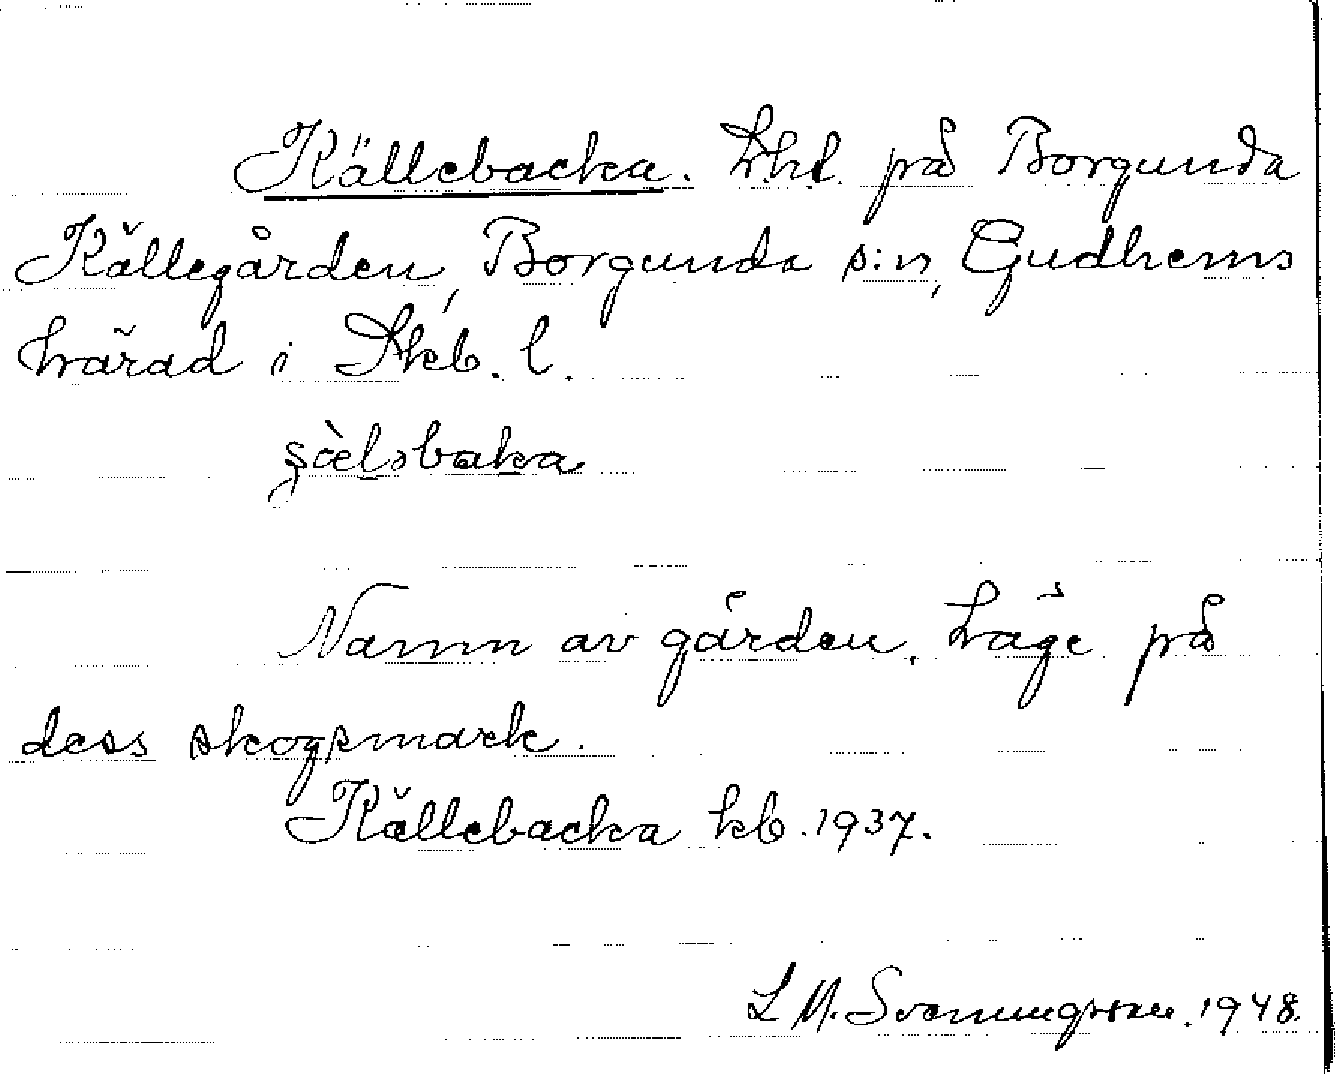 Källebacka. Lht. på Borgunda
Källegården, Borgunda s:n, Gudhems
härad i Skb. l.
Namn av gården. Läge på
dess skogsmark.
Källebacka kb. 1937.
L M. Svenungsson. 1948.